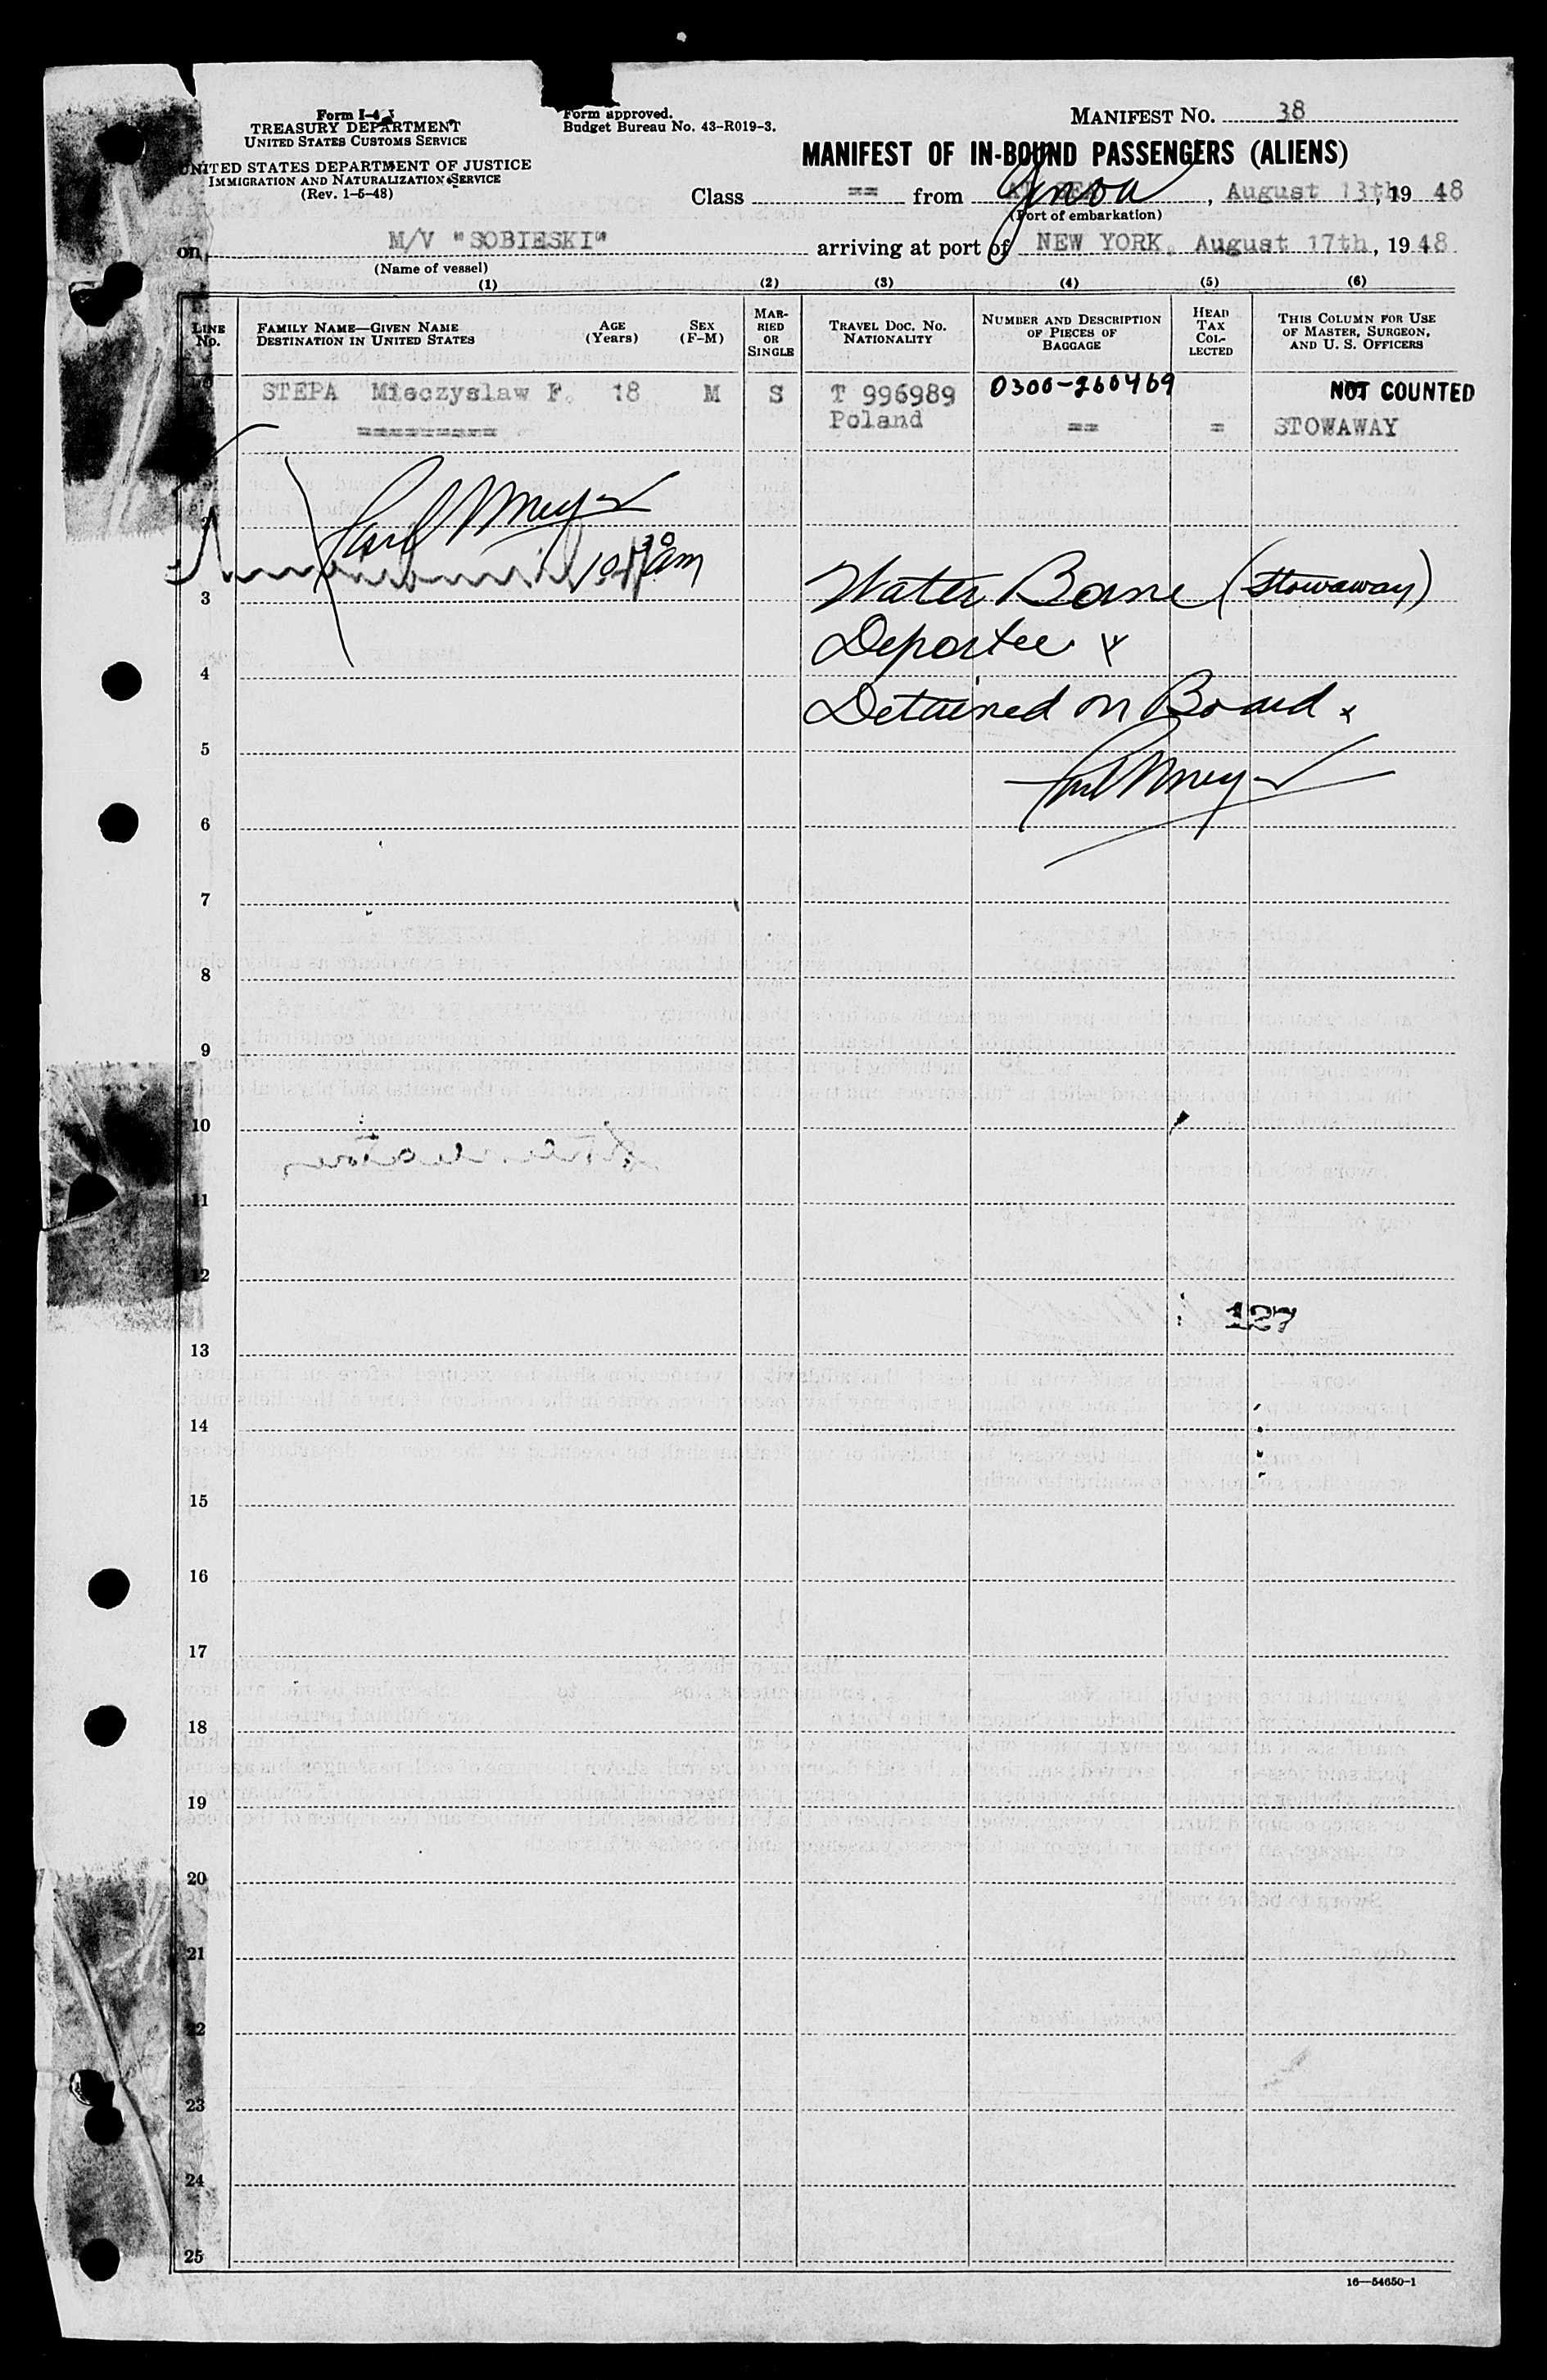 Form I-4
TREASURY DEPARTMENT
UNITED STATES CUSTOMS SERVICE
UNITED STATES DEPARTMENT OF JUSTICE
IMMIGRATION AND NATURALIZATION SERVICE
(Rev. 1-5-48)
Form approved.
Budget Bureau No. 43-R019-3.
MANIFEST NO. 38
MANIFEST OF IN-BOUND PASSENGERS (ALIENS)
Class == from Genoa, August 13th, 19 48
(Port of embarkation)
on M/V "SOBIESKI" arriving at port of NEW YORK, August 17th, 19 48
(Name of vessel)
(1) (2) (3) (4) (5) (6)
LINE No. FAMILY NAME—GIVEN NAME DESTINATION IN UNITED STATES AGE (Years) SEX (F-M) MARRIED OR SINGLE TRAVEL DOC. NO. NATIONALITY NUMBER AND DESCRIPTION OF PIECES OF BAGGAGE HEAD TAX COLLECTED THIS COLUMN FOR USE OF MASTER, SURGEON, AND U. S. OFFICERS
STEPA Mieczyslaw F. 18 M S T 996989 0300-260469 NOT COUNTED
========= Poland == = STOWAWAY
2
am
3 Water Borne (Stowaway)
Deportee x
4
Detained on Board x
5
6
7
8
9
10
11
12
127
13
14
15
16
17
18
19
20
21
22
23
24
25
16—54650-1